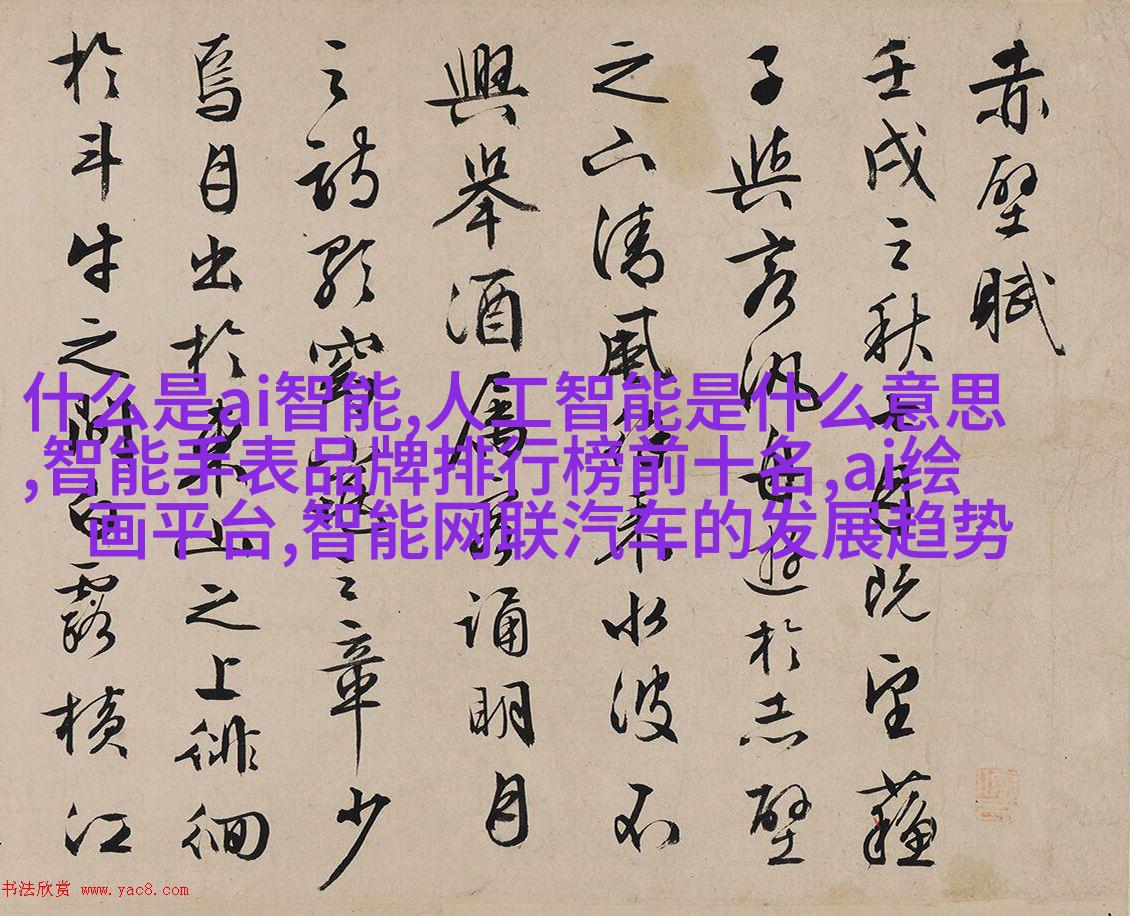 赤壁賦
壬戌之秋七月既望蘇
子與客汎舟遊於赤壁
之下清風徐來水波不
興舉酒屬客誦明月
之詩歌窈窕之章少
焉月出於東山之上徘徊
於斗牛之間白露橫江
什么是ai智能,人工智能是什么意思
,智能手表品牌排行榜前十名,ai绘
画平台,智能网联汽车的发展趋势
书法欣赏 www.yac8.com